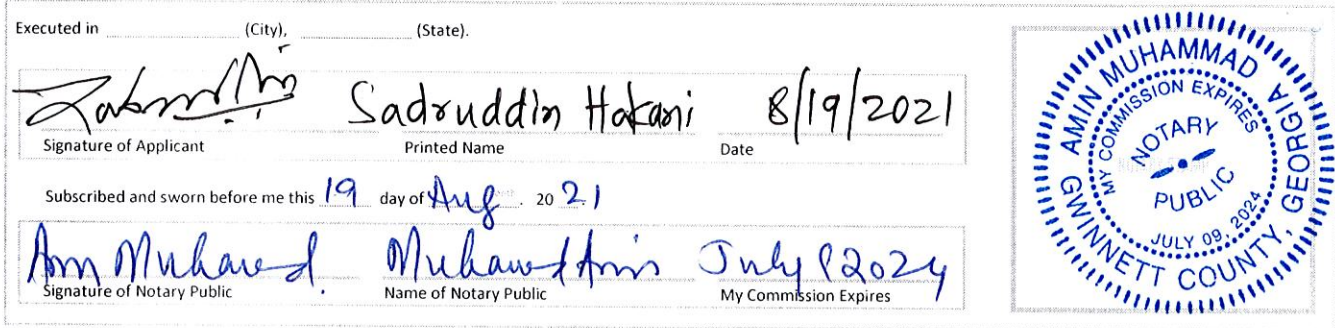 Executed in (City), (State).
Sadruddin Hakani 8/19/2021
Signature of Applicant Printed Name Date
Subscribed and sworn before me this 19 day of Aug . 20 21
Amin Muhammad Muhammad Amin July 9 2024
Signature of Notary Public Name of Notary Public My Commission Expires
AMIN MUHAMMAD
GWINNETT COUNTY, GEORGIA
MY COMMISSION EXPIRES
NOTARY
PUBLIC
JULY 09, 2024